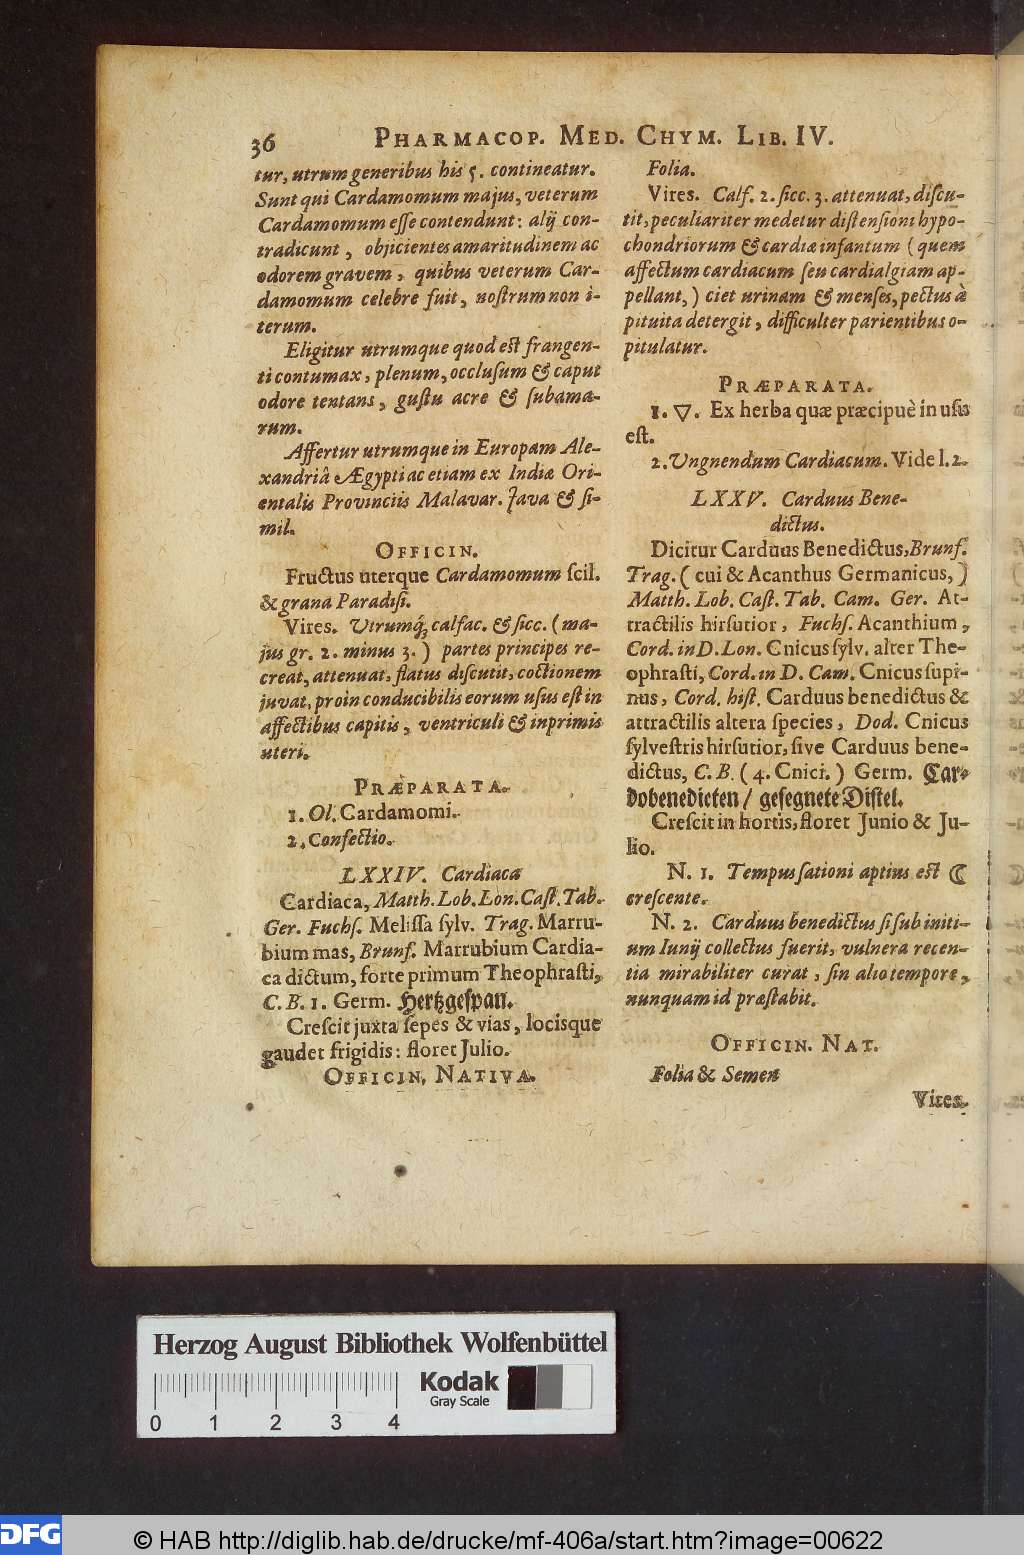 36 PHARMACOP. MED. CHYM. LIB. IV.
tur, utrum generibus his 5. contineatur.
Sunt qui Cardamomum majus, veterum
Cardamomum eſſe contendunt: alij con-
tradicunt, objicientes amaritudinem ac
odorem gravem, quibus veterum Car-
damomum celebre fuit, noſtrum non i-
terum.
Eligitur utrumque quod eſt frangen-
ti contumax, plenum, occluſum & caput
odore tentans, guſtu acre & ſubama-
rum.
Affertur utrumque in Europam Ale-
xandriâ Ægypti ac etiam ex Indiæ Ori-
entalis Provinciis Malavar. Java & ſi-
mil.
OFFICIN.
Fructus uterque Cardamomum ſcil.
& grana Paradiſi.
Vires. Utrumq́; calfac. & ſicc. (ma-
jus gr. 2. minus 3.) partes principes re-
creat, attenuat, flatus diſcutit, coctionem
juvat, proin conducibilis eorum uſus eſt in
affectibus capitis, ventriculi & inprimis
uteri.
PRÆPARATA.
1. Ol. Cardamomi.
2. Confectio.
LXXIV. Cardiaca
Cardiaca, Matth. Lob. Lon. Caſt. Tab.
Ger. Fuchſ. Meliſſa ſylv. Trag. Marru-
bium mas, Brunf. Marrubium Cardia-
ca dictum, forte primum Theophraſti,
C. B. 1. Germ. Hertzgeſpan.
Creſcit juxta ſepes & vias, locisque
gaudet frigidis: floret Julio.
OFFICIN. NATIVA.
Folia.
Vires. Calf. 2. ſicc. 3. attenuat, diſcu-
tit, peculiariter medetur diſtenſioni hypo-
chondriorum & cardiæ infantum (quem
affectum cardiacum ſeu cardialgiam ap-
pellant,) ciet urinam & menſes, pectus à
pituita detergit, difficulter parientibus o-
pitulatur.
PRÆPARATA.
1. ▽. Ex herba quæ præcipuè in uſu
eſt.
2. Ungnendum Cardiacum. Vide l. 2.
LXXV. Carduus Bene-
dictus.
Dicitur Carduus Benedictus, Brunf.
Trag. (cui & Acanthus Germanicus,)
Matth. Lob. Caſt. Tab. Cam. Ger. At-
tractilis hirſutior, Fuchſ. Acanthium,
Cord. in D. Lon. Cnicus ſylv. alter The-
ophraſti, Cord. in D. Cam. Cnicus ſupi-
nus, Cord. hiſt. Carduus benedictus &
attractilis altera ſpecies, Dod. Cnicus
ſylveſtris hirſutior, ſive Carduus bene-
dictus, C. B. (4. Cnici.) Germ. Car-
dobenedicten / geſegnete Diſtel.
Creſcit in hortis, floret Junio & Ju-
lio.
N. 1. Tempus ſationi aptius eſt ☾
creſcente.
N. 2. Carduus benedictus ſi ſub initi-
um Iunij collectus fuerit, vulnera recen-
tia mirabiliter curat, ſin alio tempore,
nunquam id præſtabit.
OFFICIN. NAT.
Folia & Semen
Vires.
Herzog August Bibliothek Wolfenbüttel
0 1 2 3 4
Kodak
Gray Scale
DFG
© HAB http://diglib.hab.de/drucke/mf-406a/start.htm?image=00622